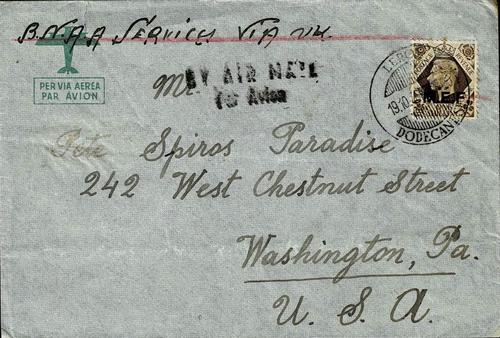 B.N.A.A SERVICE VIA U.K.
PER VIA AEREA
PAR AVION
BY AIR MAIL
Par Avion
Mr.
M.E.F.
19.10
DODECANESE
Pete Spiros Paradise
242 West Chestnut Street
Washington, Pa.
U. S. A.